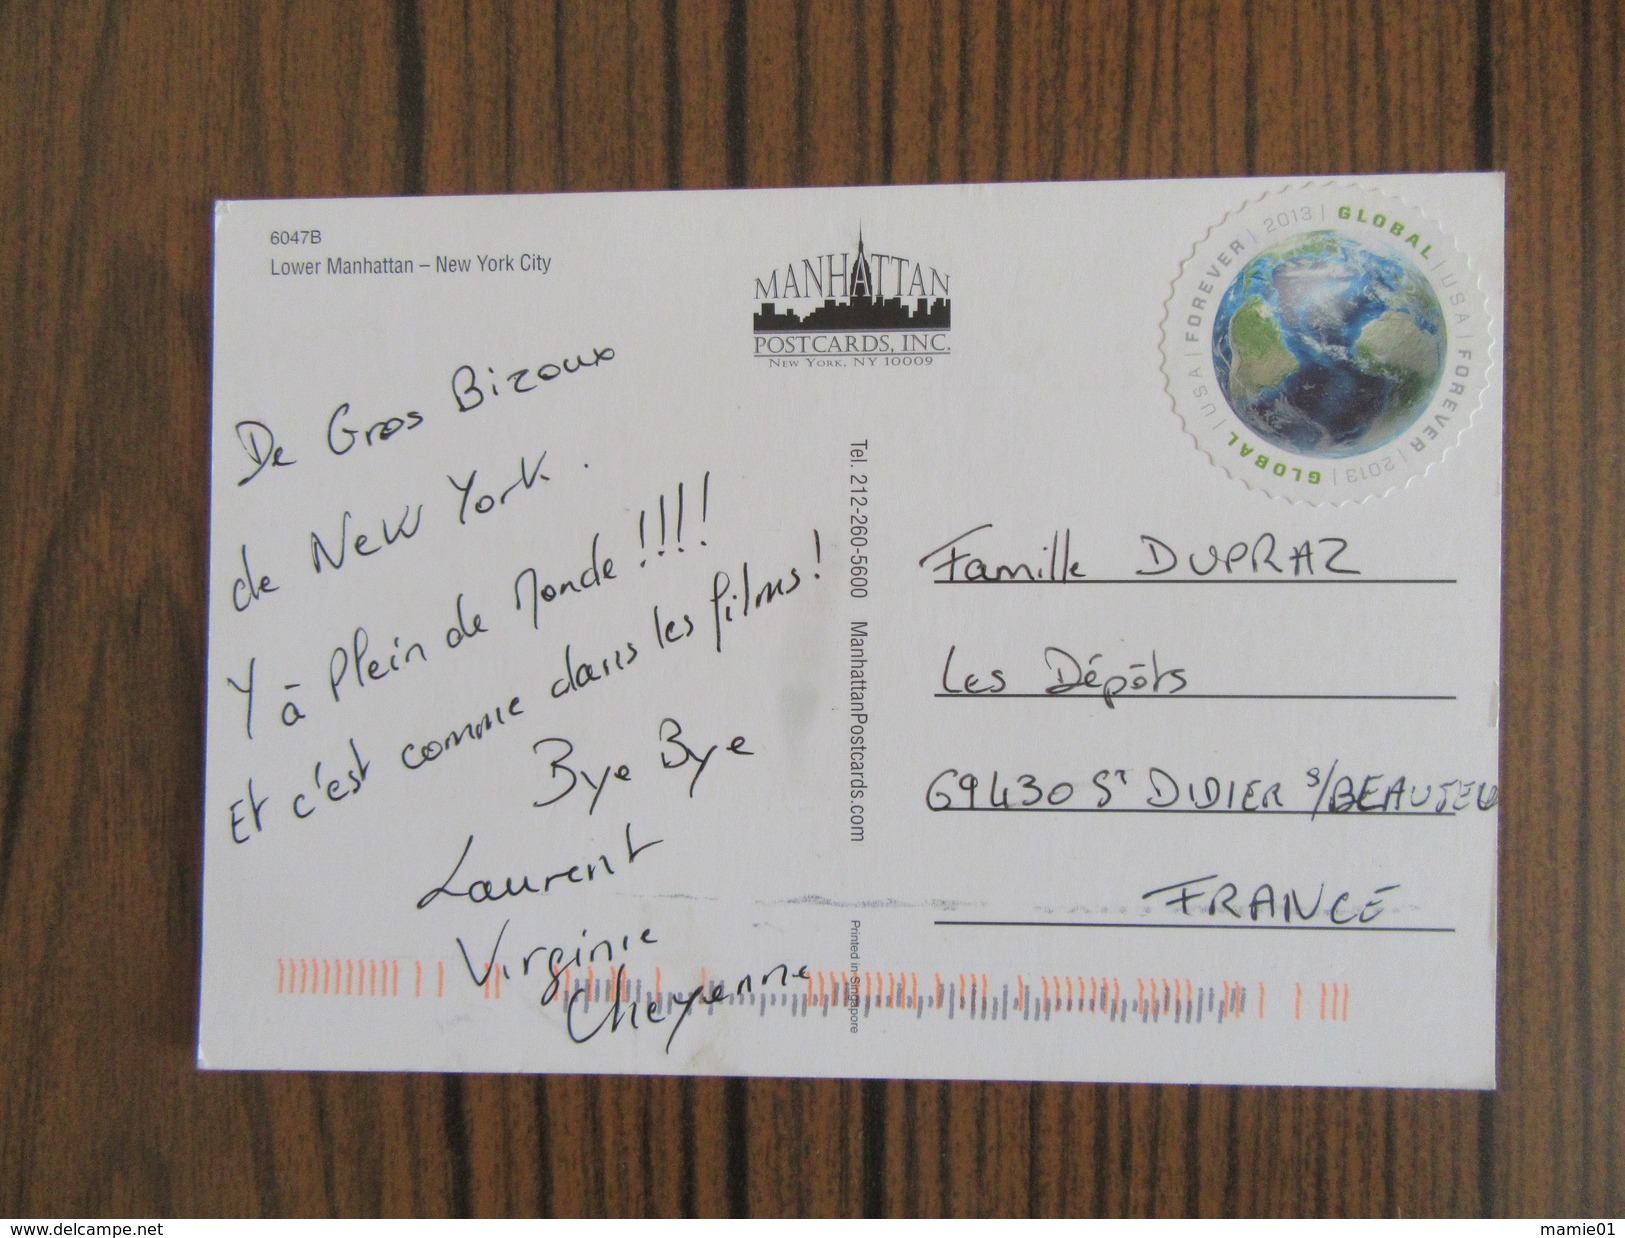 6047B
Lower Manhattan – New York City
MANHATTAN
POSTCARDS, INC.
NEW YORK, NY 10009
USA | FOREVER | 2013 | GLOBAL | USA | FOREVER | 2013 | GLOBAL |
De Gros Bizoux
de New York.
Y à Plein de Monde !!!!
Et c'est comme dans les films !
Bye Bye
Laurent
Virginie
Cheyenne
Tel. 212-260-5600 ManhattanPostcards.com
Printed in Singapore
Famille DUPRAZ
Les Dépôts
69430 St DIDIER s/BEAUJEU
FRANCE
www.delcampe.net
mamie01